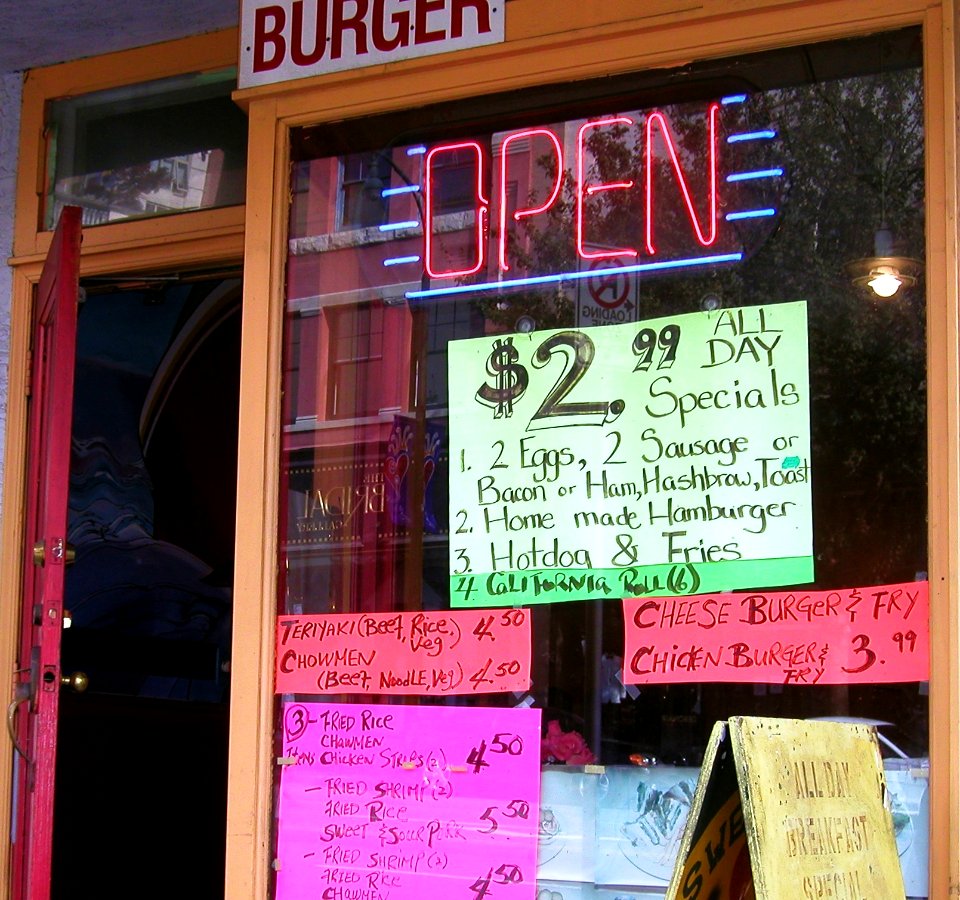 BURGER
OPEN
LOADING
ZONE
$2.99 ALL
DAY
Specials
1. 2 Eggs, 2 Sausage or
Bacon or Ham, Hashbraw, Toast
2. Home made Hamburger
3. Hotdog & Fries
4. CALIFORNIA ROLL (6)
THE
BRIDAL
TERIYAKI (Beef, Rice, Veg) 4.50
CHOWMEN
(Beef, NoodLE, Veg) 4.50
CHEESE BURGER & FRY
CHICKEN BURGER & FRY 3.99
3 - FRIED RICE
ITEMS CHOWMEN
CHICKEN STRIPS (2) 4.50
- FRIED SHRIMP (2)
FRIED RICE 5.50
SWEET & SOUR PORK
- FRIED SHRIMP (2)
FRIED RICE
CHOWMEN 4.50
ALL DAY
BREAKFAST
SPECIAL
SWE